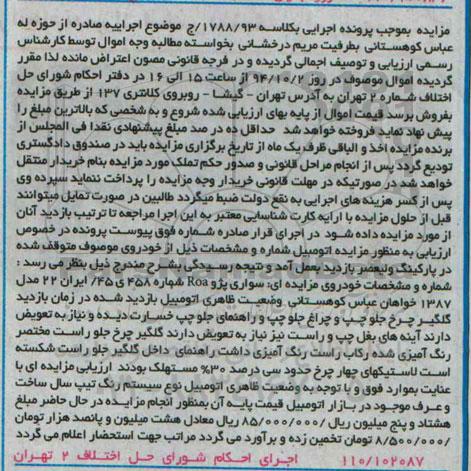 مزایده بموجب پرونده اجرایی بکلاسه ۱۷۸۸/۹۳/ج موضوع اجراییه صادره از حوزه له
عباس کوهستانی بطرفیت مریم درخشانی بخواسته مطالبه وجه اموال توسط کارشناس
رسمی ارزیابی و توصیف اجمالی گردیده و در فرجه قانونی مصون اعتراض مانده لذا مقرر
گردیده اموال موصوف در روز ۹۴/۱۰/۲ از ساعت ۱۵ الی ۱۶ در دفتر احکام شورای حل
اختلاف شماره ۲ تهران به آدرس تهران - گیشا - روبروی کلانتری ۱۳۷ از طریق مزایده
بفروش برسد قیمت اموال از پایه بهای ارزیابی شده شروع و به شخصی که بالاترین مبلغ را
پیش نهاد نماید فروخته خواهد شد حداقل ده در صد مبلغ پیشنهادی نقدا فی المجلس از
برنده مزایده اخذ و الباقی ظرف یک ماه از تاریخ برگزاری مزایده باید در صندوق دادگستری
تودیع گردد پس از انجام مراحل قانونی و صدور حکم تملک مورد مزایده بنام خریدار منتقل
خواهد شد در صورتیکه در مهلت قانونی خریدار وجه مزایده را پرداخت ننماید سپرده وی
پس از کسر هزینه های اجرایی به نفع دولت ضبط میگردد طالبین در صورت تمایل میتوانند
قبل از حلول مزایده با ارایه کارت شناسایی معتبر به این اجرا مراجعه تا ترتیب بازدید آنان
از مورد مزایده داده شود در اجرای قرار صادره شماره فوق پیوست پرونده در خصوص
ارزیابی به منظور مزایده اتومبیل شماره و مشخصات ذیل از خودروی موصوف متوقف شده
در پارکینگ ولیعصر بازدید بعمل آمد و نتیجه رسیدگی بشرح مندرج ذیل بنظر می رسد :
شماره و مشخصات خودروی مزایده ای: سواری پژو Roa شماره ۴۵۸ ی ۴۵/ ایران ۲۲ مدل
۱۳۸۷ خواهان عباس کوهستانی وضعیت ظاهری اتومبیل بازدید شده در زمان بازدید
گلگیر چرخ جلو چپ و چراغ جلو چپ و راهنمای جلو چپ خسارت دیده و نیاز به تعویض
دارند آینه های بغل چپ و راست نیز نیاز به تعویض دارند گلگیر چرخ جلو راست مختصر
رنگ آمیزی شده رکاب راست رنگ آمیزی داشت راهنمای داخل گلگیر جلو راست شکسته
است لاستیکهای چهار چرخ حدود سی درصد ۳۰% مستهلک بودند ارزیابی مزایده ای با
عنایت بموارد فوق و با توجه به وضعیت ظاهری اتومبیل نوع سیستم رنگ تیپ سال ساخت
و عرف موجود در بازار اتومبیل قیمت پایه آن بمنظور انجام مزایده در حال حاضر مبلغ
هشتاد و پنج میلیون ریال ۸۵/۰۰۰/۰۰۰ ریال معادل هشت میلیون و پانصد هزار تومان
۸/۵۰۰/۰۰۰ تومان تخمین زده و برآورد می گردد مراتب جهت استحضار اعلام می گردد
۱۱۰/۱۰۲۰۸۷ اجرای احکام شورای حل اختلاف ۲ تهران